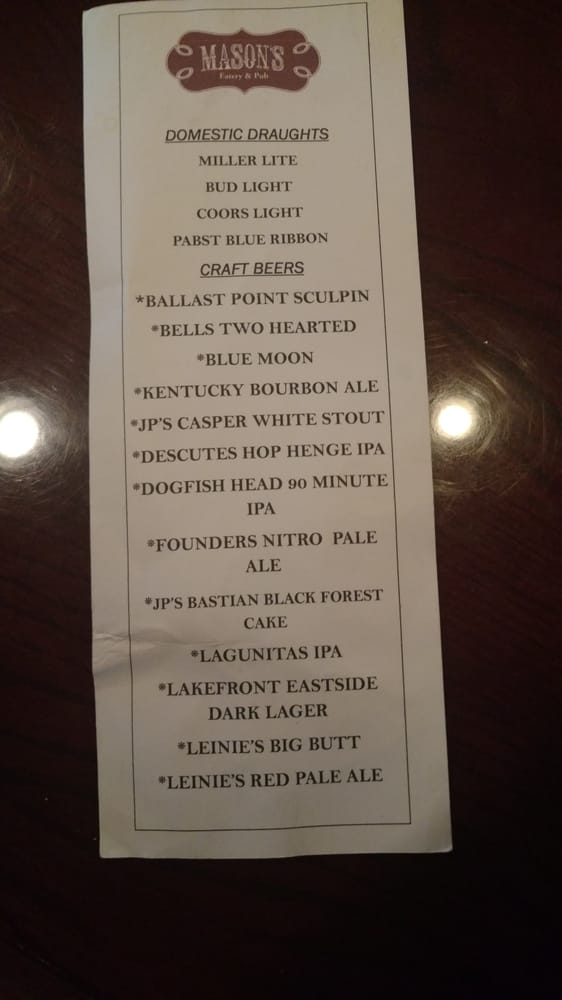 MASON'S
Eatery & Pub
DOMESTIC DRAUGHTS
MILLER LITE
BUD LIGHT
COORS LIGHT
PABST BLUE RIBBON
CRAFT BEERS
*BALLAST POINT SCULPIN
*BELLS TWO HEARTED
*BLUE MOON
*KENTUCKY BOURBON ALE
*JP'S CASPER WHITE STOUT
*DESCUTES HOP HENGE IPA
*DOGFISH HEAD 90 MINUTE
IPA
*FOUNDERS NITRO PALE
ALE
*JP'S BASTIAN BLACK FOREST
CAKE
*LAGUNITAS IPA
*LAKEFRONT EASTSIDE
DARK LAGER
*LEINIE'S BIG BUTT
*LEINIE'S RED PALE ALE